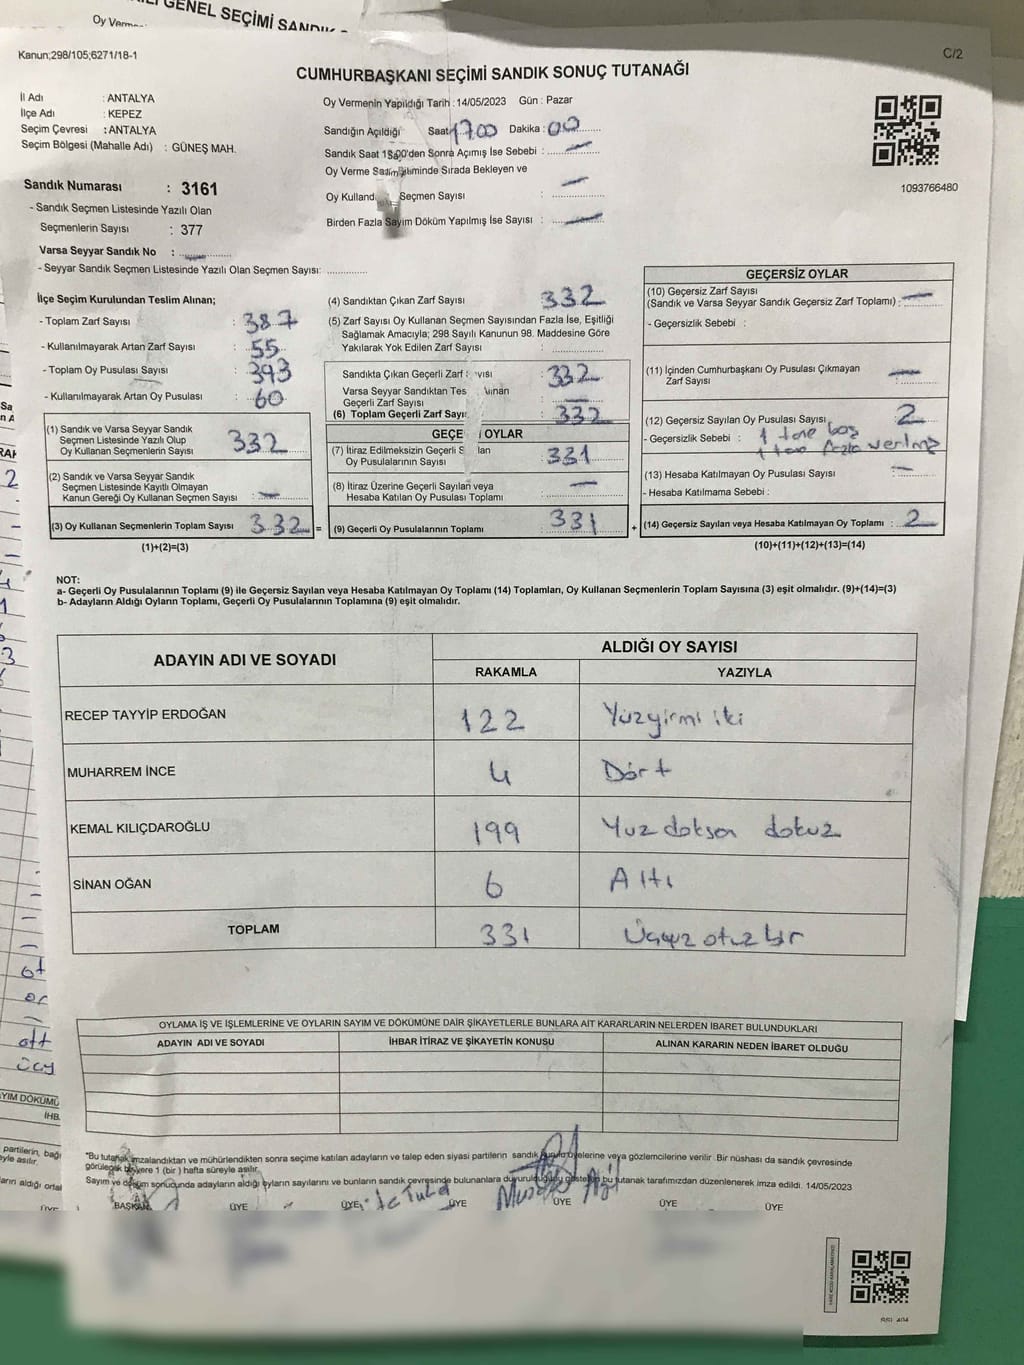 GENEL SEÇİMİ SANDIK
Oy Verme
Kanun;298/105;6271/18-1
C/2
CUMHURBAŞKANI SEÇİMİ SANDIK SONUÇ TUTANAĞI
İl Adı : ANTALYA
İlçe Adı : KEPEZ
Seçim Çevresi : ANTALYA
Seçim Bölgesi (Mahalle Adı) : GÜNEŞ MAH.
Oy Vermenin Yapıldığı Tarih : 14/05/2023 Gün : Pazar
Sandığın Açıldığı Saat 17.00 Dakika : 00
Sandık Saat 'den Sonra Açımış İse Sebebi :
Oy Verme Sırada Bekleyen ve
Oy Kulland Seçmen Sayısı :
Birden Fazla Sayım Döküm Yapılmış İse Sayısı :
1093766480
Sandık Numarası : 3161
- Sandık Seçmen Listesinde Yazılı Olan
Seçmenlerin Sayısı : 377
Varsa Seyyar Sandık No :
- Seyyar Sandık Seçmen Listesinde Yazılı Olan Seçmen Sayısı:
İlçe Seçim Kurulundan Teslim Alınan;
- Toplam Zarf Sayısı : 387
- Kullanılmayarak Artan Zarf Sayısı : 55
- Toplam Oy Pusulası Sayısı : 393
- Kullanılmayarak Artan Oy Pusulası : 60
(1) Sandık ve Varsa Seyyar Sandık
Seçmen Listesinde Yazılı Olup
Oy Kullanan Seçmenlerin Sayısı 332
(2) Sandık ve Varsa Seyyar Sandık
Seçmen Listesinde Kayıtlı Olmayan
Kanun Gereği Oy Kullanan Seçmen Sayısı : —
(3) Oy Kullanan Seçmenlerin Toplam Sayısı 332 =
(1)+(2)=(3)
(4) Sandıktan Çıkan Zarf Sayısı 332
(5) Zarf Sayısı Oy Kullanan Seçmen Sayısından Fazla İse, Eşitliği
Sağlamak Amacıyla; 298 Sayılı Kanunun 98. Maddesine Göre
Yakılarak Yok Edilen Zarf Sayısı :
Sandıkta Çıkan Geçerli Zarf : 332
Varsa Seyyar Sandıktan
Geçerli Zarf Sayısı : —
(6) Toplam Geçerli Zarf : 332
OYLAR
(7) İtiraz Edilmeksizin Geçerli
Oy Pusulalarının Sayısı : 331
(8) İtiraz Üzerine Geçerli Sayılan veya
Hesaba Katılan Oy Pusulası Toplamı : —
(9) Geçerli Oy Pusulalarının Toplamı : 331 +
GEÇERSİZ OYLAR
(10) Geçersiz Zarf Sayısı
(Sandık ve Varsa Seyyar Sandık Geçersiz Zarf Toplamı) : —
- Geçersizlik Sebebi :
(11) İçinden Cumhurbaşkanı Oy Pusulası Çıkmayan
Zarf Sayısı : —
(12) Geçersiz Sayılan Oy Pusulası Sayısı : 2
- Geçersizlik Sebebi : 1 tane boş
1 tane fazla verilmiş
(13) Hesaba Katılmayan Oy Pusulası Sayısı : —
- Hesaba Katılmama Sebebi :
(14) Geçersiz Sayılan veya Hesaba Katılmayan Oy Toplamı : 2
(10)+(11)+(12)+(13)=(14)
NOT:
a- Geçerli Oy Pusulalarının Toplamı (9) ile Geçersiz Sayılan veya Hesaba Katılmayan Oy Toplamı (14) Toplamları, Oy Kullanan Seçmenlerin Toplam Sayısına (3) eşit olmalıdır. (9)+(14)=(3)
b- Adayların Aldığı Oyların Toplamı, Geçerli Oy Pusulalarının Toplamına (9) eşit olmalıdır.
ADAYIN ADI VE SOYADI
ALDIĞI OY SAYISI
RAKAMLA YAZIYLA
RECEP TAYYİP ERDOĞAN 122 Yüzyirmi iki
MUHARREM İNCE 4 Dört
KEMAL KILIÇDAROĞLU 199 Yuz doksan dokuz
SİNAN OĞAN 6 Altı
TOPLAM 331 Üçyüz otuz bir
OYLAMA İŞ VE İŞLEMLERİNE VE OYLARIN SAYIM VE DÖKÜMÜNE DAİR ŞİKAYETLERLE BUNLARA AİT KARARLARIN NELERDEN İBARET BULUNDUKLARI
ADAYIN ADI VE SOYADI İHBAR İTİRAZ VE ŞİKAYETİN KONUSU ALINAN KARARIN NEDEN İBARET OLDUĞU
"Bu tutanak imzalandıktan ve mühürlendikten sonra seçime katılan adayların ve talep eden siyasi partilerin sandık kurulu üyelerine veya gözlemcilerine verilir. Bir nüshası da sandık çevresinde
görülecek bir yere 1 (bir ) hafta süreyle asılır.
Sayım ve döküm sonucunda adayların aldığı oyların sayılarını ve bunların sandık çevresinde bulunanlara duyurulduğunu gösteren bu tutanak tarafımızdan düzenlenerek imza edildi. 14/05/2023
BAŞKAN ÜYE ÜYE ÜYE ÜYE ÜYE ÜYE